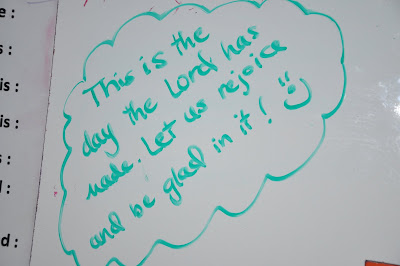 This is the
day the Lord has
made. Let us rejoice
and be glad in it!
e :
s :
is :
is :
s :
l :
d :